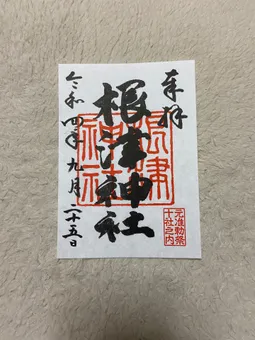 奉拝
根津神社
根津神社
元准勅祭
十社之内
令和四年九月二十五日